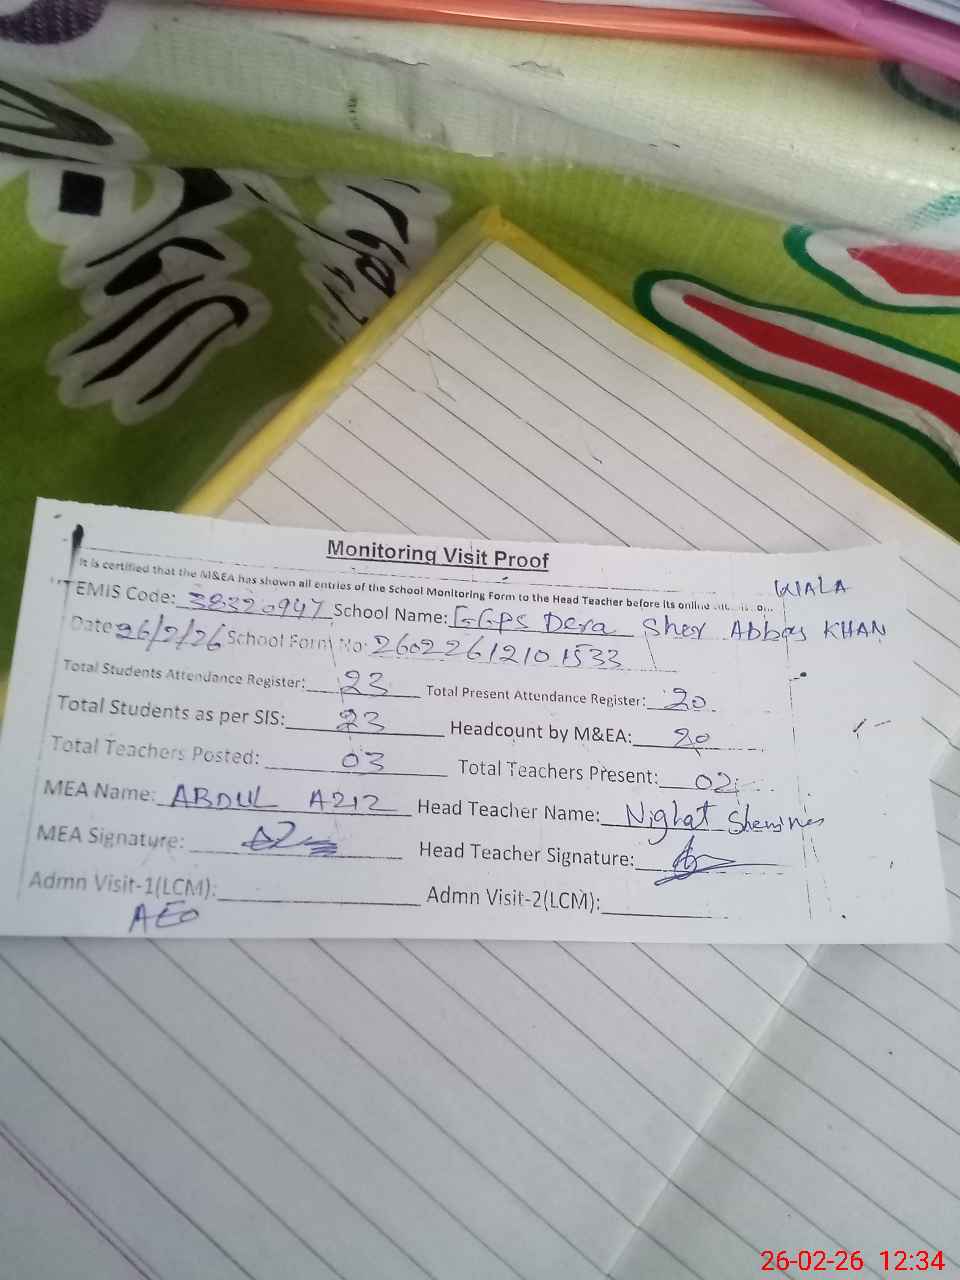 Monitoring Visit Proof
It is certified that the M&EA has shown all entries of the School Monitoring Form to the Head Teacher before its online
WALA
EMIS Code: 38320947 School Name: GGPS Dera Sher Abbas KHAN
Date 26/2/26 School Form No: 26022612101533
Total Students Attendance Register: 23 Total Present Attendance Register: 20
Total Students as per SIS: 23 Headcount by M&EA: 20
Total Teachers Posted: 03 Total Teachers Present: 02
MEA Name: ABDUL AZIZ Head Teacher Name: Nighat
MEA Signature: Head Teacher Signature:
Admn Visit-1(LCM): Admn Visit-2(LCM):
AEO
26-02-26 12:34